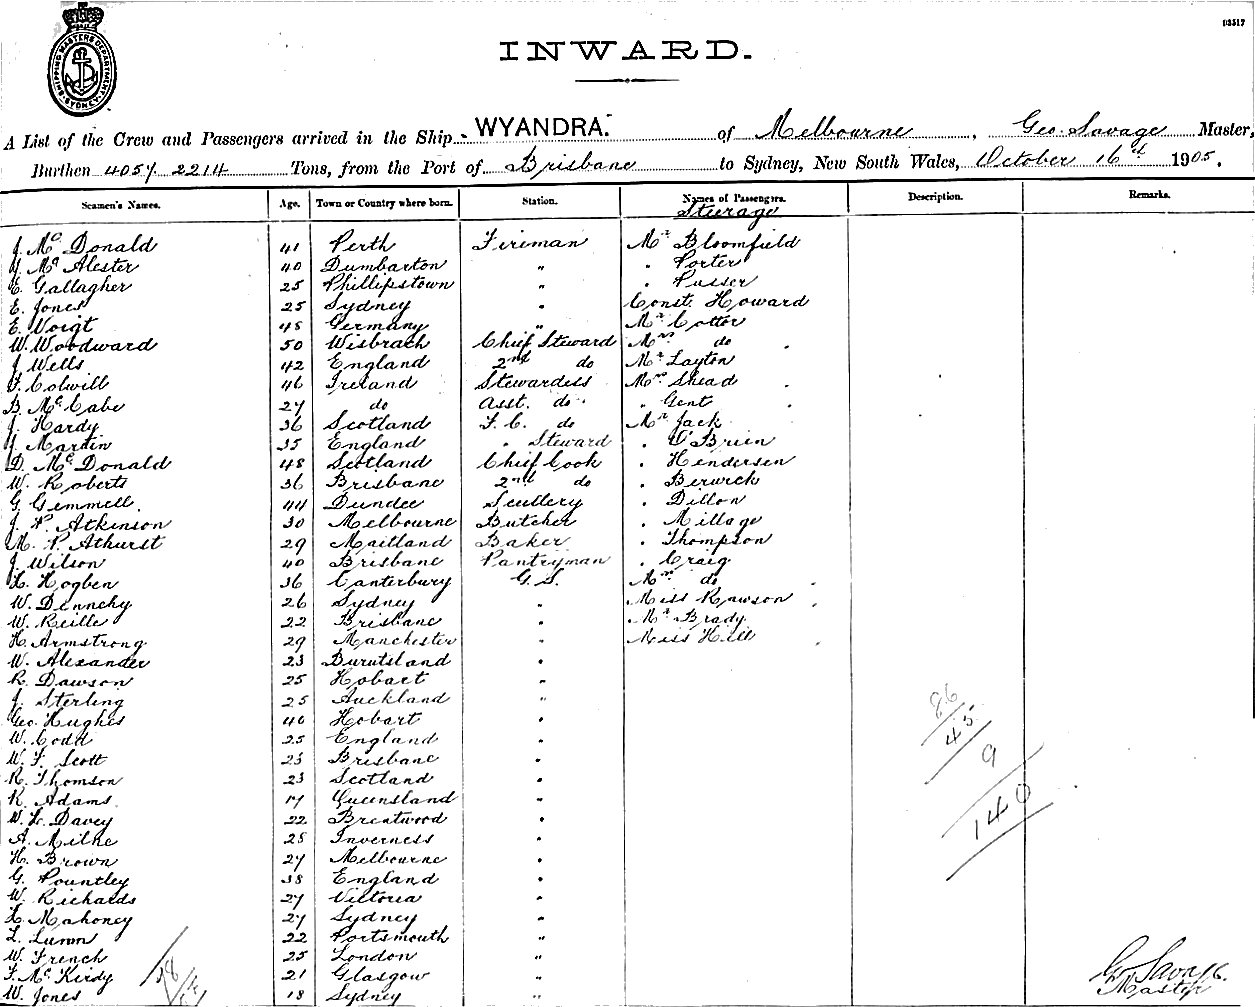 13517
SHIPPING MASTERS DEPARTMENT SYDNEY
INWARD.
A List of the Crew and Passengers arrived in the Ship WYANDRA. of Melbourne, Geo. Savage Master,
Burthen 4057. 2214 Tons, from the Port of Brisbane to Sydney, New South Wales, October 16th 1905.
Seamen's Names. Age. Town or Country where born. Station. Names of Passengers. Description. Remarks.
Steerage
J. Mc Donald 41 Perth Fireman Mr Bloomfield
J. Mc Alester 40 Dumbarton " . Porter
E. Gallagher 25 Phillipstown " . Pusser
E. Jones 25 Sydney " Const. Howard
E. Voigt 48 Germany " Mr Cotter
W. Woodward 50 Wisbeach Chief Steward Mrs do
J. Wells 42 England 2nd do Mr Layton
F. Colwill 46 Ireland Stewardess Mrs Shead
B. Mc Cabe 27 do Asst. do . Gent
J. Hardy 36 Scotland F. C. do Mr Jack
J. Martin 35 England . Steward . O'Brien
D. Mc Donald 48 Scotland Chief Cook . Hendersen
W. Roberts 36 Brisbane 2nd do . Berwick
G. Gemmell 44 Dundee Scullery . Dillon
J. P. Atkinson 30 Melbourne Butcher . Millage
M. P. Athurst 29 Maitland Baker . Thompson
J. Wilson 40 Brisbane Pantryman . Craig
H. Hogben 36 Canterbury G. S. Mrs do
W. Dennehy 26 Sydney " Miss Rawson
W. Reille 22 Brisbane " Mr Brady
H. Armstrong 29 Manchester " Miss Hill
W. Alexander 23 "
R. Dawson 25 Hobart "
J. Sterling 25 Auckland "
Geo. Hughes 40 Hobart "
W. Codd 25 England "
W. F. Scott 23 Brisbane "
R. Thomson 23 Scotland "
R. Adams 17 Queensland "
W. H. Davey 22 Brentwood "
A. Milne 25 Inverness "
H. Brown 27 Melbourne "
G. Pountley 38 England "
W. Richards 27 Victoria "
L. Mahoney 27 Sydney "
L. Lunn 22 Portsmouth "
W. French 25 London "
F. Mc Kirdy 21 Glasgow "
W. Jones 18 Sydney "
86
45
9
140
Geo Savage
Master